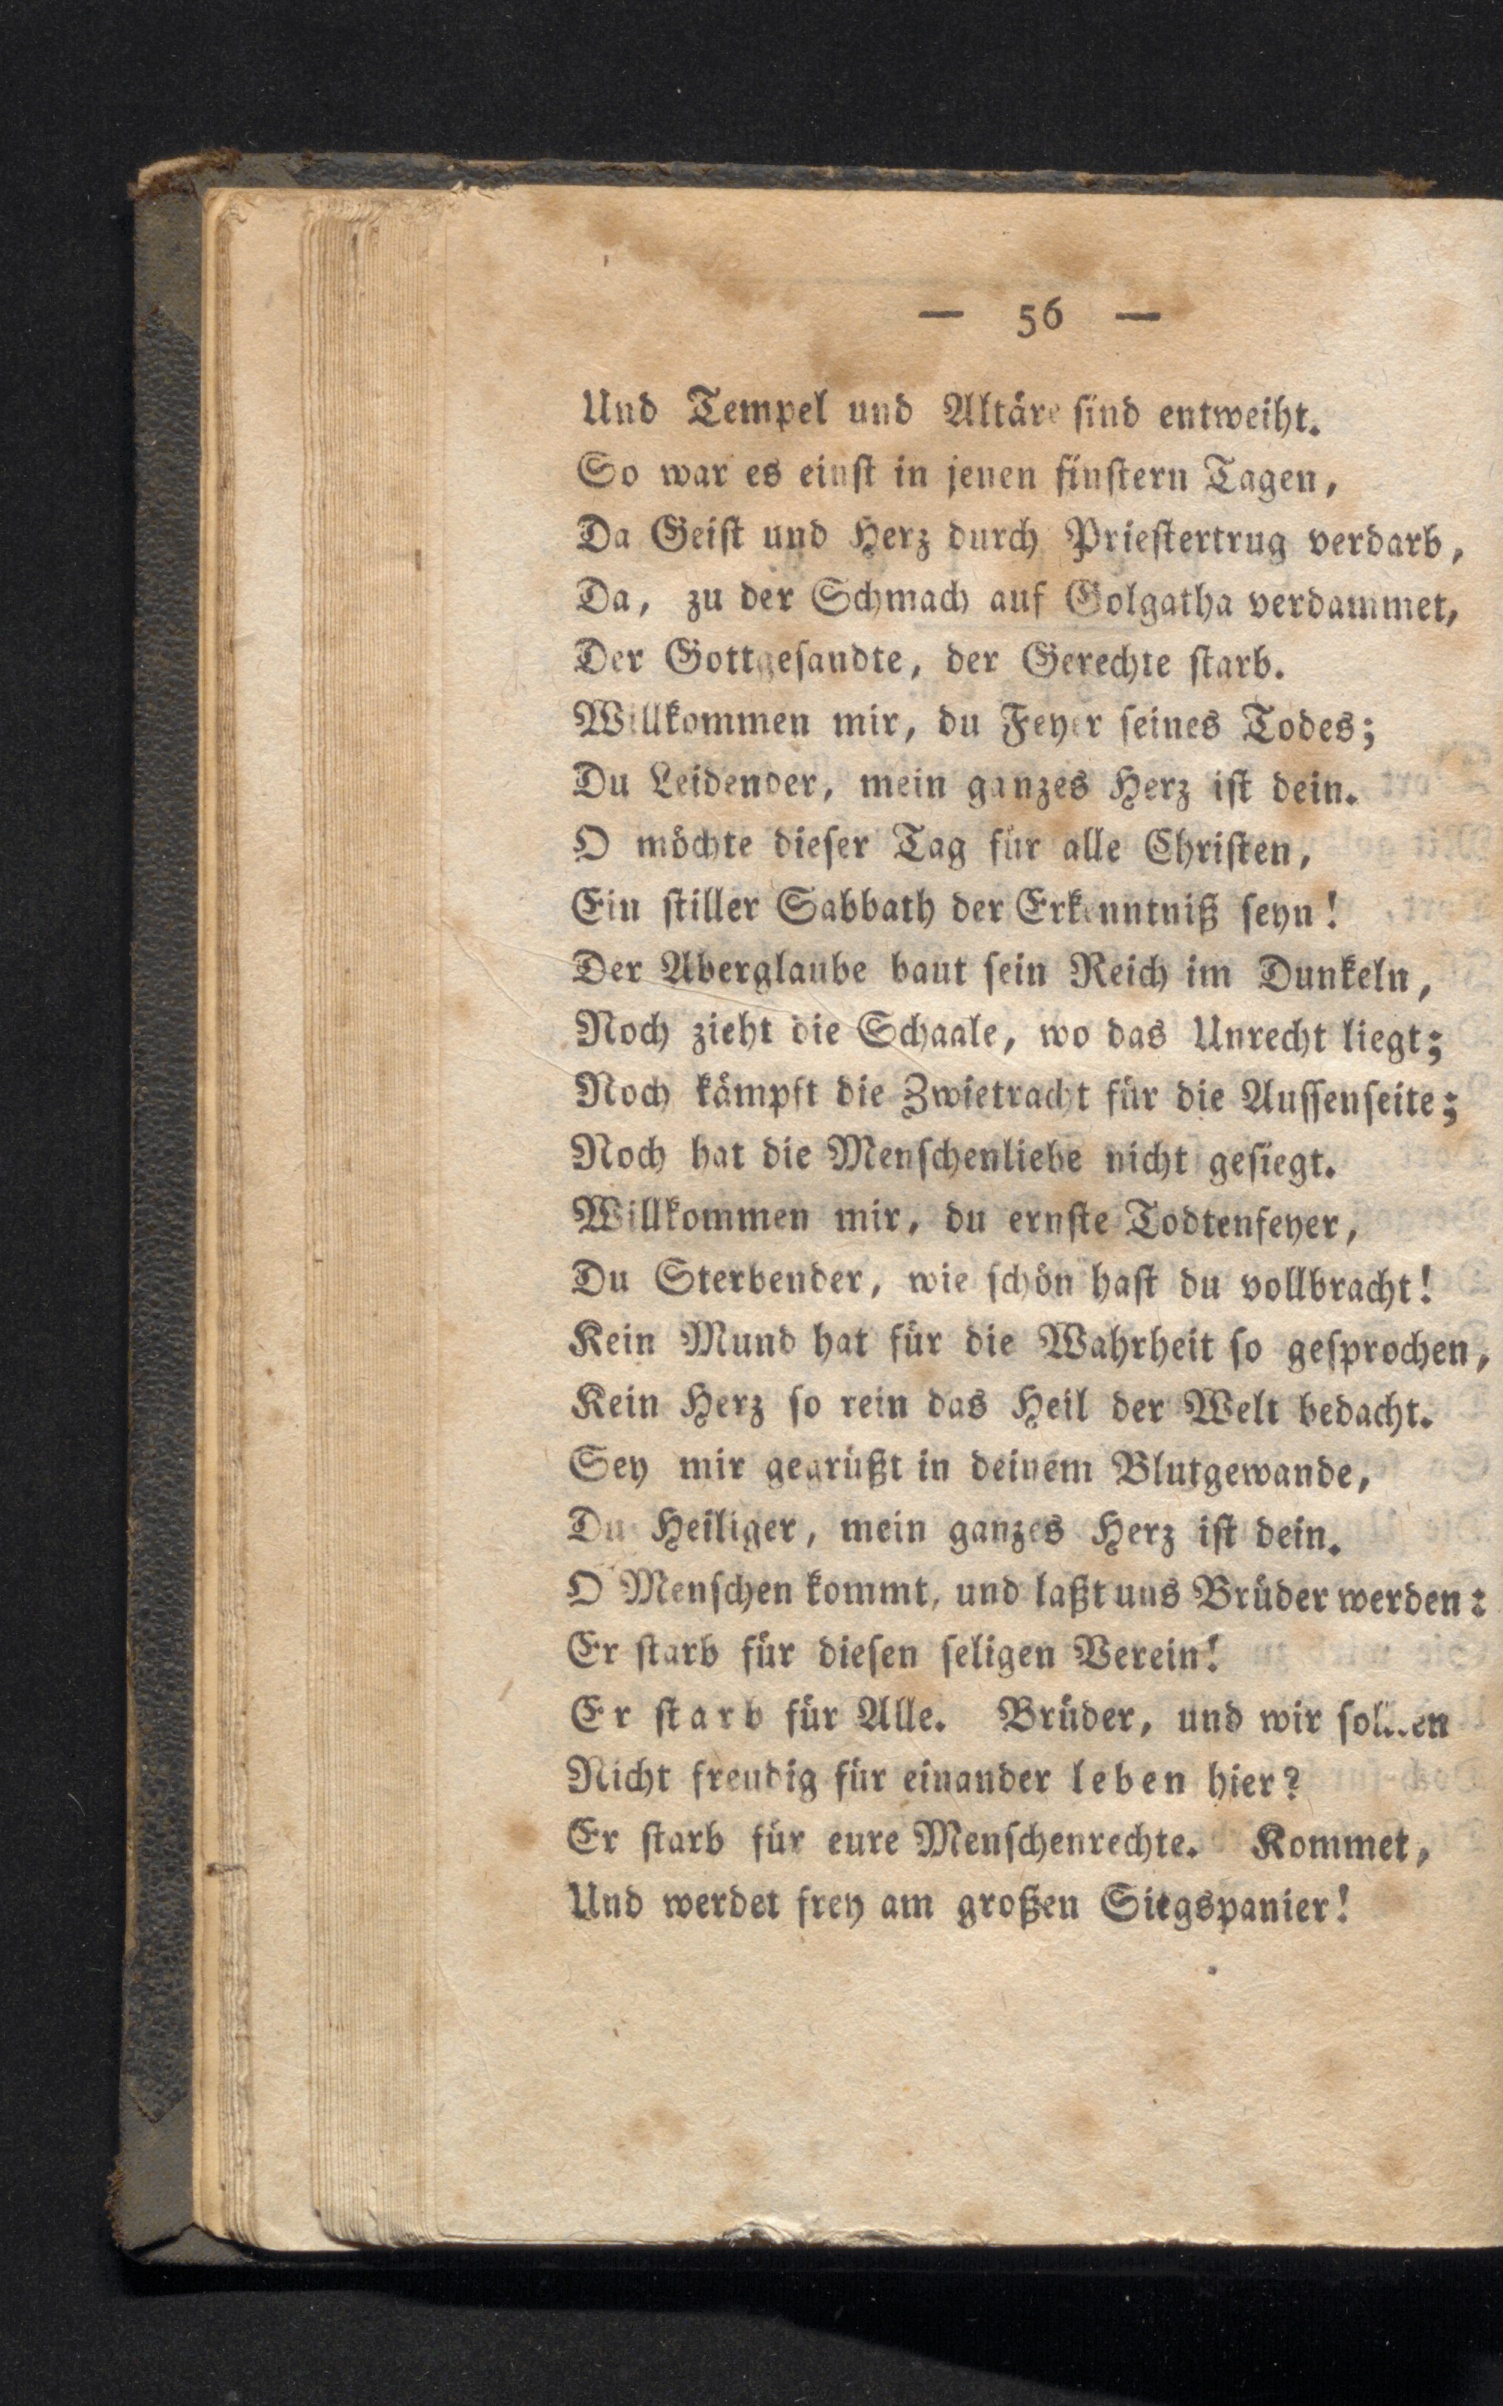 — 56 —
Und Tempel und Altäre sind entweiht.
So war es einst in jenen finstern Tagen,
Da Geist und Herz durch Priestertrug verdarb,
Da, zu der Schmach auf Golgatha verdammet,
Der Gottgesandte, der Gerechte starb.
Willkommen mir, du Feyer seines Todes;
Du Leidender, mein ganzes Herz ist dein.
O möchte dieser Tag für alle Christen,
Ein stiller Sabbath der Erkenntniß seyn!
Der Aberglaube baut sein Reich im Dunkeln,
Noch zieht die Schaale, wo das Unrecht liegt;
Noch kämpft die Zwietracht für die Aussenseite;
Noch hat die Menschenliebe nicht gesiegt.
Willkommen mir, du ernste Todtenfeyer,
Du Sterbender, wie schön hast du vollbracht!
Kein Mund hat für die Wahrheit so gesprochen,
Kein Herz so rein das Heil der Welt bedacht.
Sey mir gegrüßt in deinem Blutgewande,
Du Heiliger, mein ganzes Herz ist dein.
O Menschen kommt, und laßt uns Brüder werden:
Er starb für diesen seligen Verein!
Er starb für Alle. Brüder, und wir sollten
Nicht freudig für einander leben hier?
Er starb für eure Menschenrechte. Kommet,
Und werdet frey am großen Siegspanier!